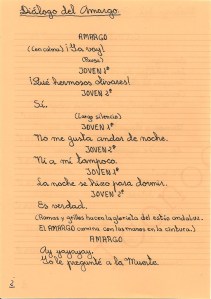 Diálogo del Amargo.
AMARGO
(Con calma) ¡Ya voy!
(Pausa)
JOVEN 1º
¡Qué hermosos olivares!
JOVEN 2º
Sí.
(Largo silencio)
JOVEN 1º
No me gusta andar de noche.
JOVEN 2º
Ni a mí tampoco.
JOVEN 1º
La noche se hizo para dormir.
JOVEN 2º
Es verdad.
(Ranas y grillos hacen la glorieta del estío andaluz.
El AMARGO camina con las manos en la cintura.)
AMARGO.
Ay yayayay.
Yo le pregunté a la Muerte.